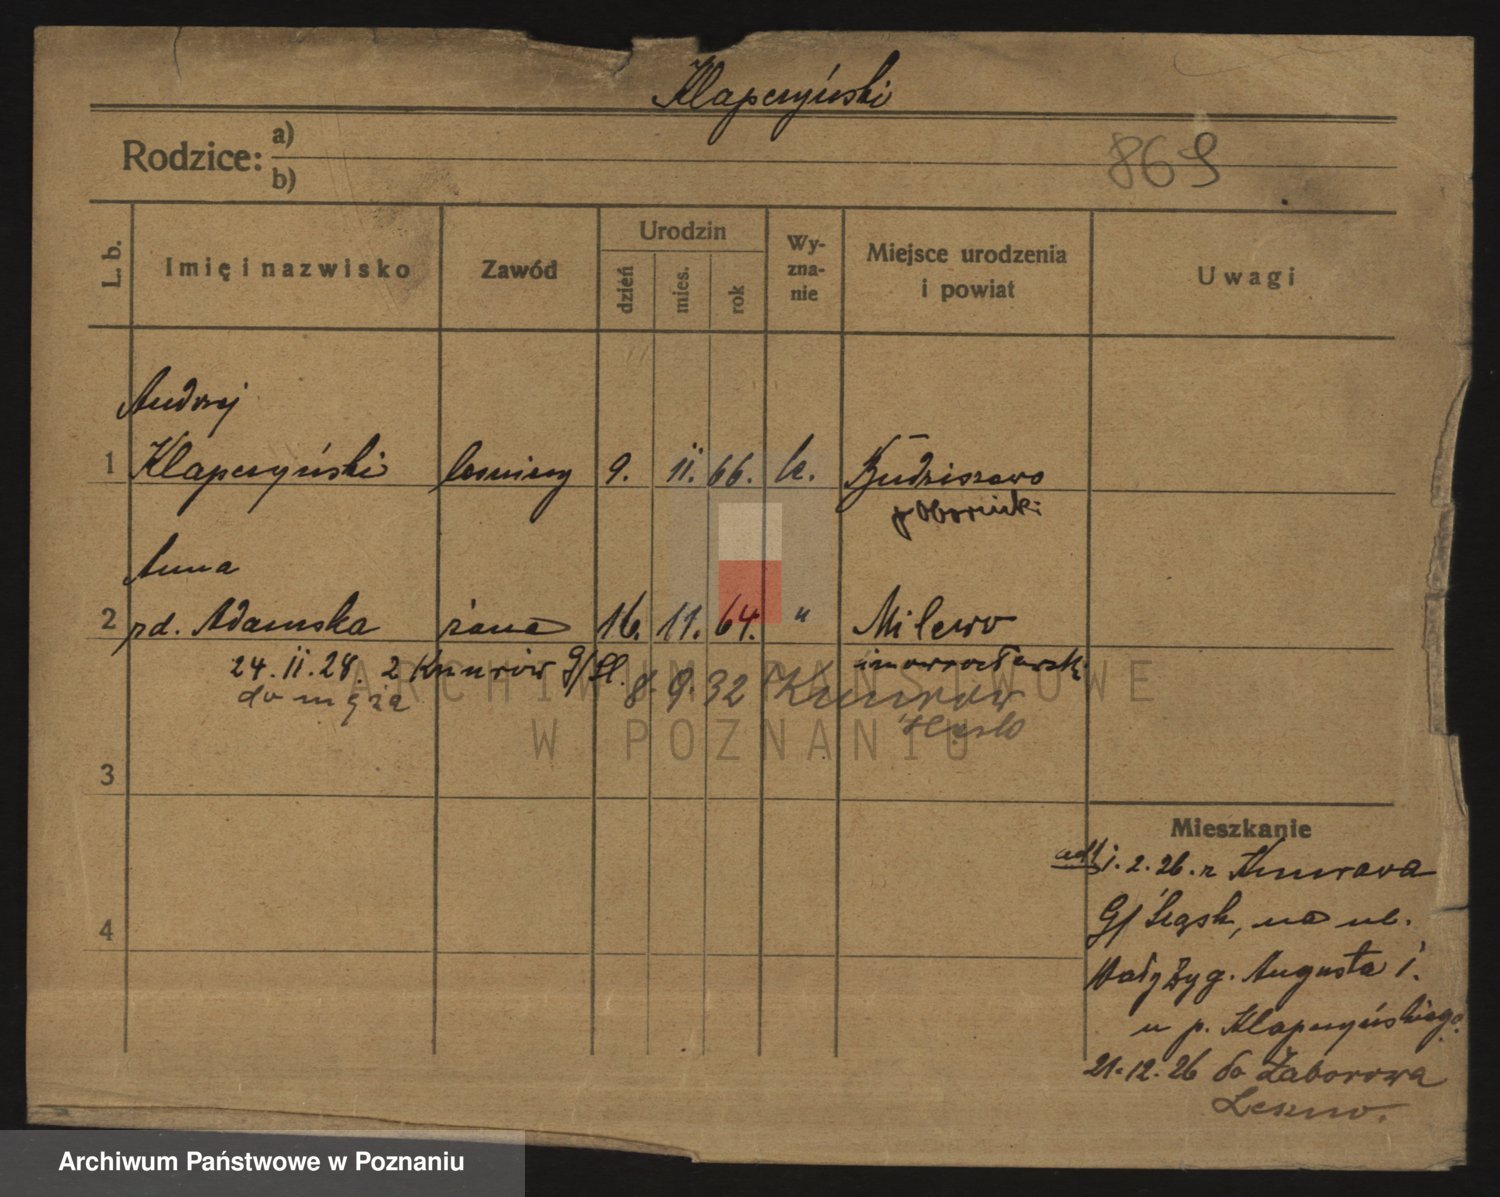 Klapczyński
Rodzice: a)
b)
869
L. b.
Imię i nazwisko
Zawód
Urodzin
dzień
mies.
rok
Wy-
zna-
nie
Miejsce urodzenia
i powiat
Uwagi
Andrzej
1 Klapczyński leśniczy 9. II. 66. k. Budziszewo
p Obornicki
Anna
2 rd. Adamska żona 16. 11. 64. " Milewo
24. II. 28. z Knurów G/Śl. inowrocławsk.
do męża 8. 9. 32 Knurów
Śląsk
3
4
Mieszkanie
1. 2. 26. z Knurowa
G/ Śląsk, na ul.
Wały Zyg. Augusta 1.
u p. Klapczyńskiego
21.12.26 do Zaborowa
Leszno.
ARCHIWUM PAŃSTWOWE
W POZNANIU
Archiwum Państwowe w Poznaniu